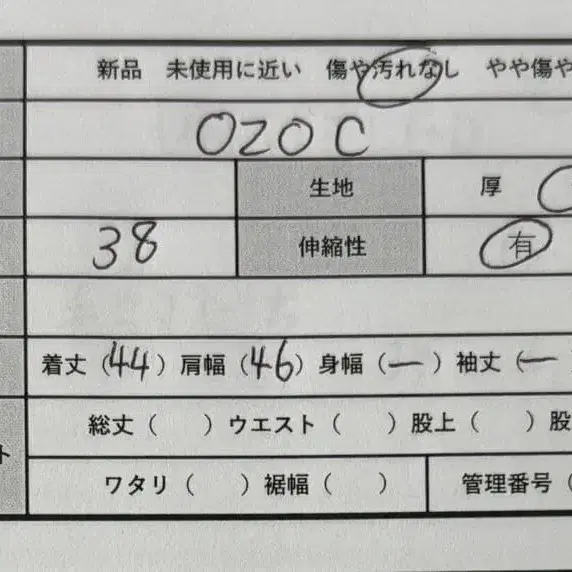 新品 未使用に近い 傷や汚れなし やや傷や
OZOC
生地 厚
38 伸縮性 有
着丈（44）肩幅（46）身幅（ー）袖丈（ー
総丈（ ）ウエスト（ ）股上（ ）股
ト
ワタリ（ ）裾幅（ ） 管理番号（